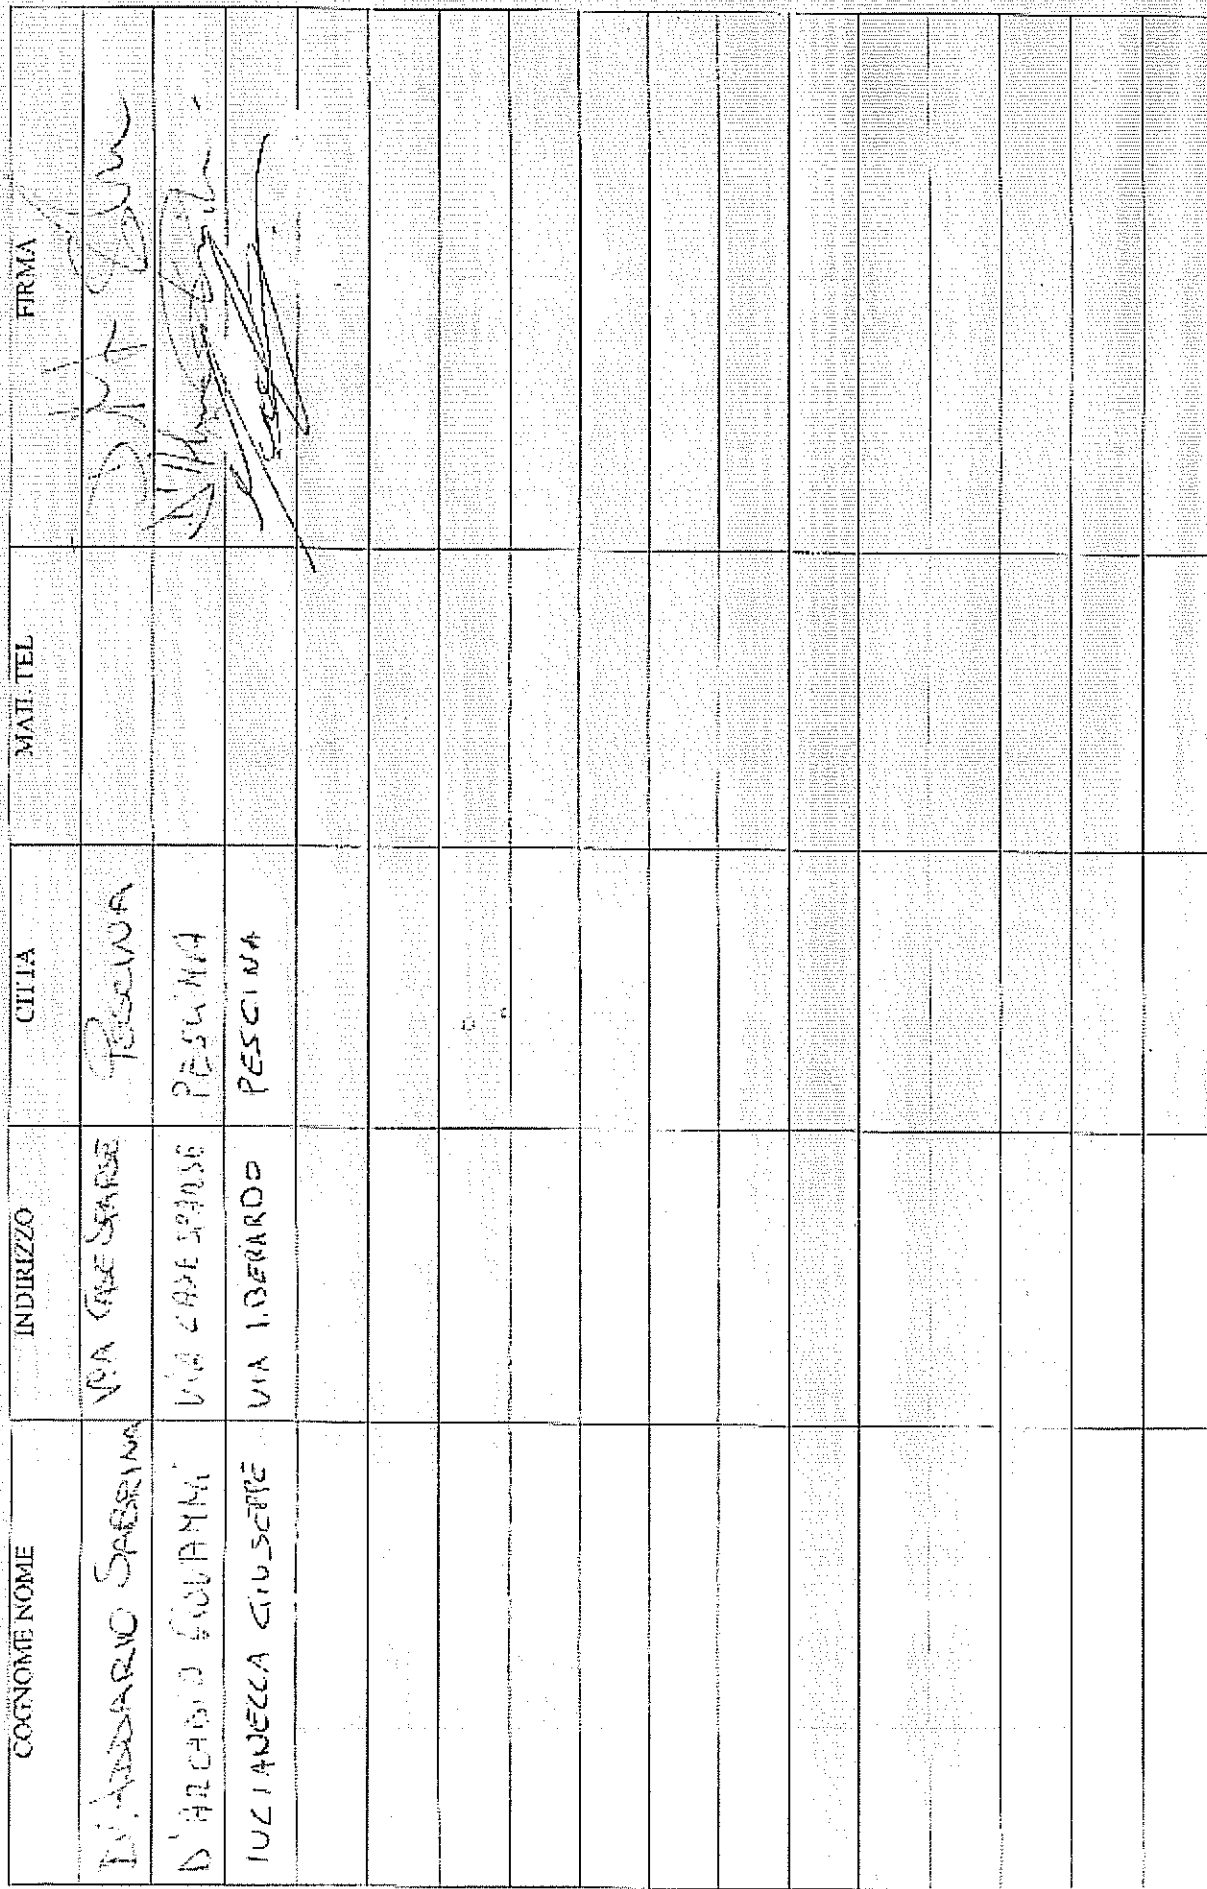 COGNOME NOME INDIRIZZO CITTA MAIL. TEL FIRMA
D'ADDARIO SABRINA VIA CASE SPARSE PESCINA
D'ARCANGELO GIOVANNI VIA CASE SPARSE PESCINA
IUCIANELLA GIUSEPPE VIA 1.BERARDO PESCINA